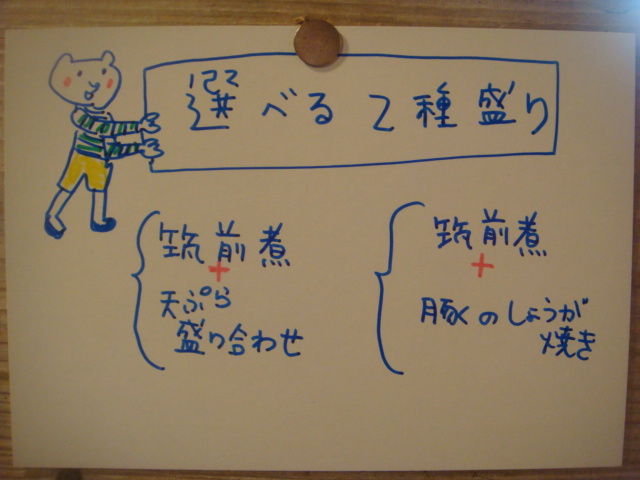 選べる2種盛り
筑前煮
+
天ぷら
盛り合わせ
筑前煮
+
豚のしょうが
焼き